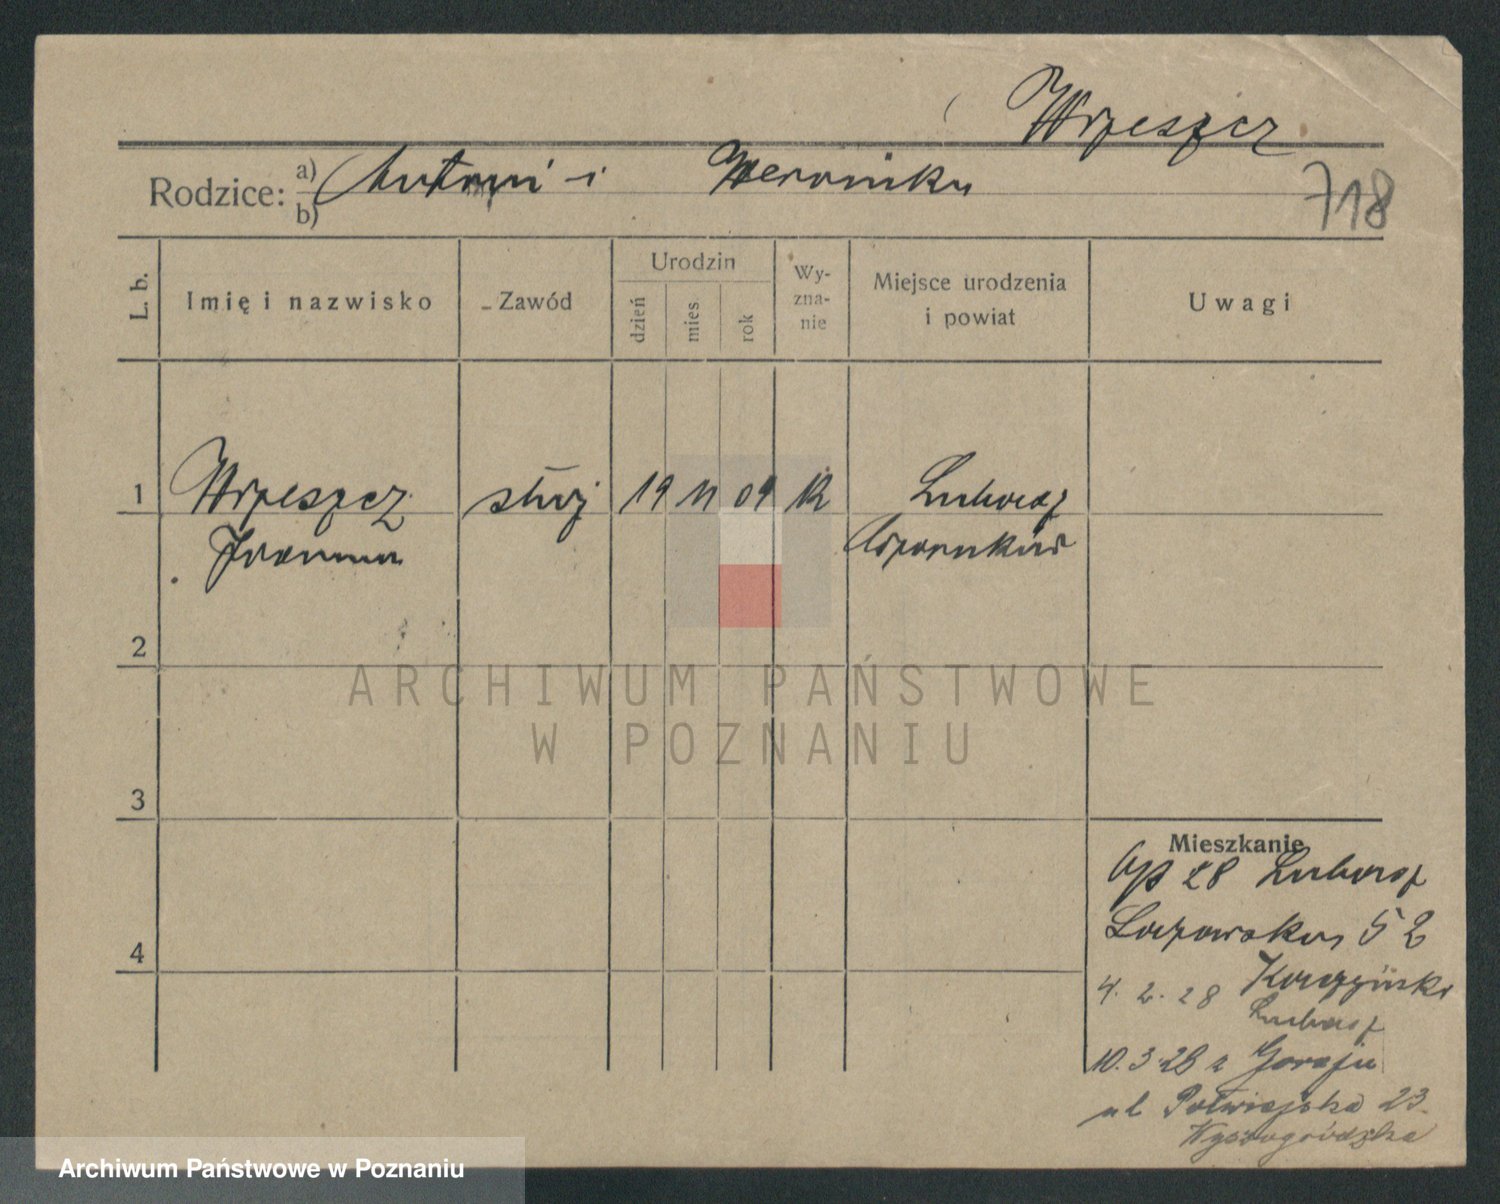 Wrzeszcz
Rodzice: a) Antoni i Weronika
b)
718
L. b.
Imię i nazwisko
Zawód
Urodzin
dzień
mies
rok
Wy-
zna-
nie
Miejsce urodzenia
i powiat
Uwagi
1 Wrzeszcz służ 19 11 09 Lubasz
Joanna Czarnków
2
3
4
Mieszkanie
28 Lubasz
52
4. 2. 28
Lubasz
10. 3. 28 z Goraju
ul 23
Wyszogródzka
ARCHIWUM PAŃSTWOWE
W POZNANIU
Archiwum Państwowe w Poznaniu